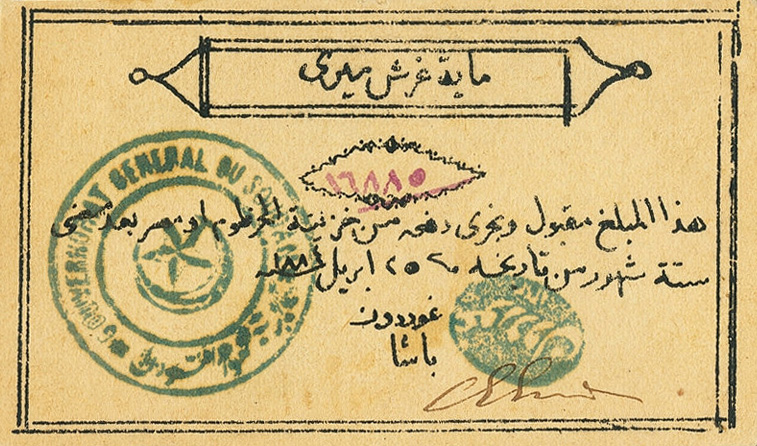 ماية غرش ميرى
١٦٨٨٥
هذا المبلغ مقبول ويجرى دفعه من خزينة الخرطوم او مصر بعد مضى
ستة شهور من تاريخه ٢٥ ابريل ١٨٨٤
غوردون
باشا
GOUVERNORAT GENERAL DU SOUDAN